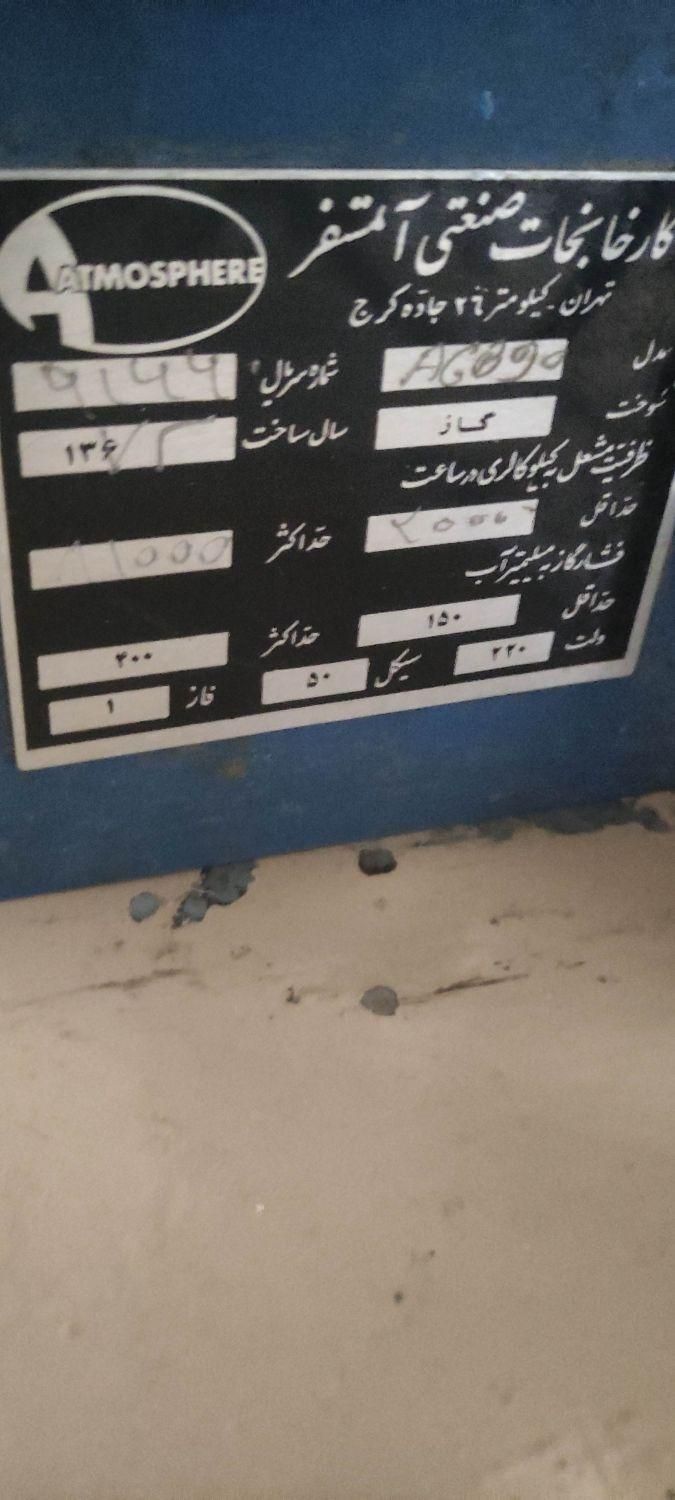 ATMOSPHERE
کارخانجات صنعتی آتمسفر
تهران - کیلومتر ۲۶ جاده کرج
مدل شماره سریال
سوخت گاز سال ساخت ۱۳۶
ظرفیت مشعل به کیلوکالری در ساعت
حداقل حداکثر
فشار گاز به میلیمتر آب
حداقل ۱۵۰ حداکثر ۴۰۰
ولت ۲۲۰ سیکل ۵۰ فاز ۱